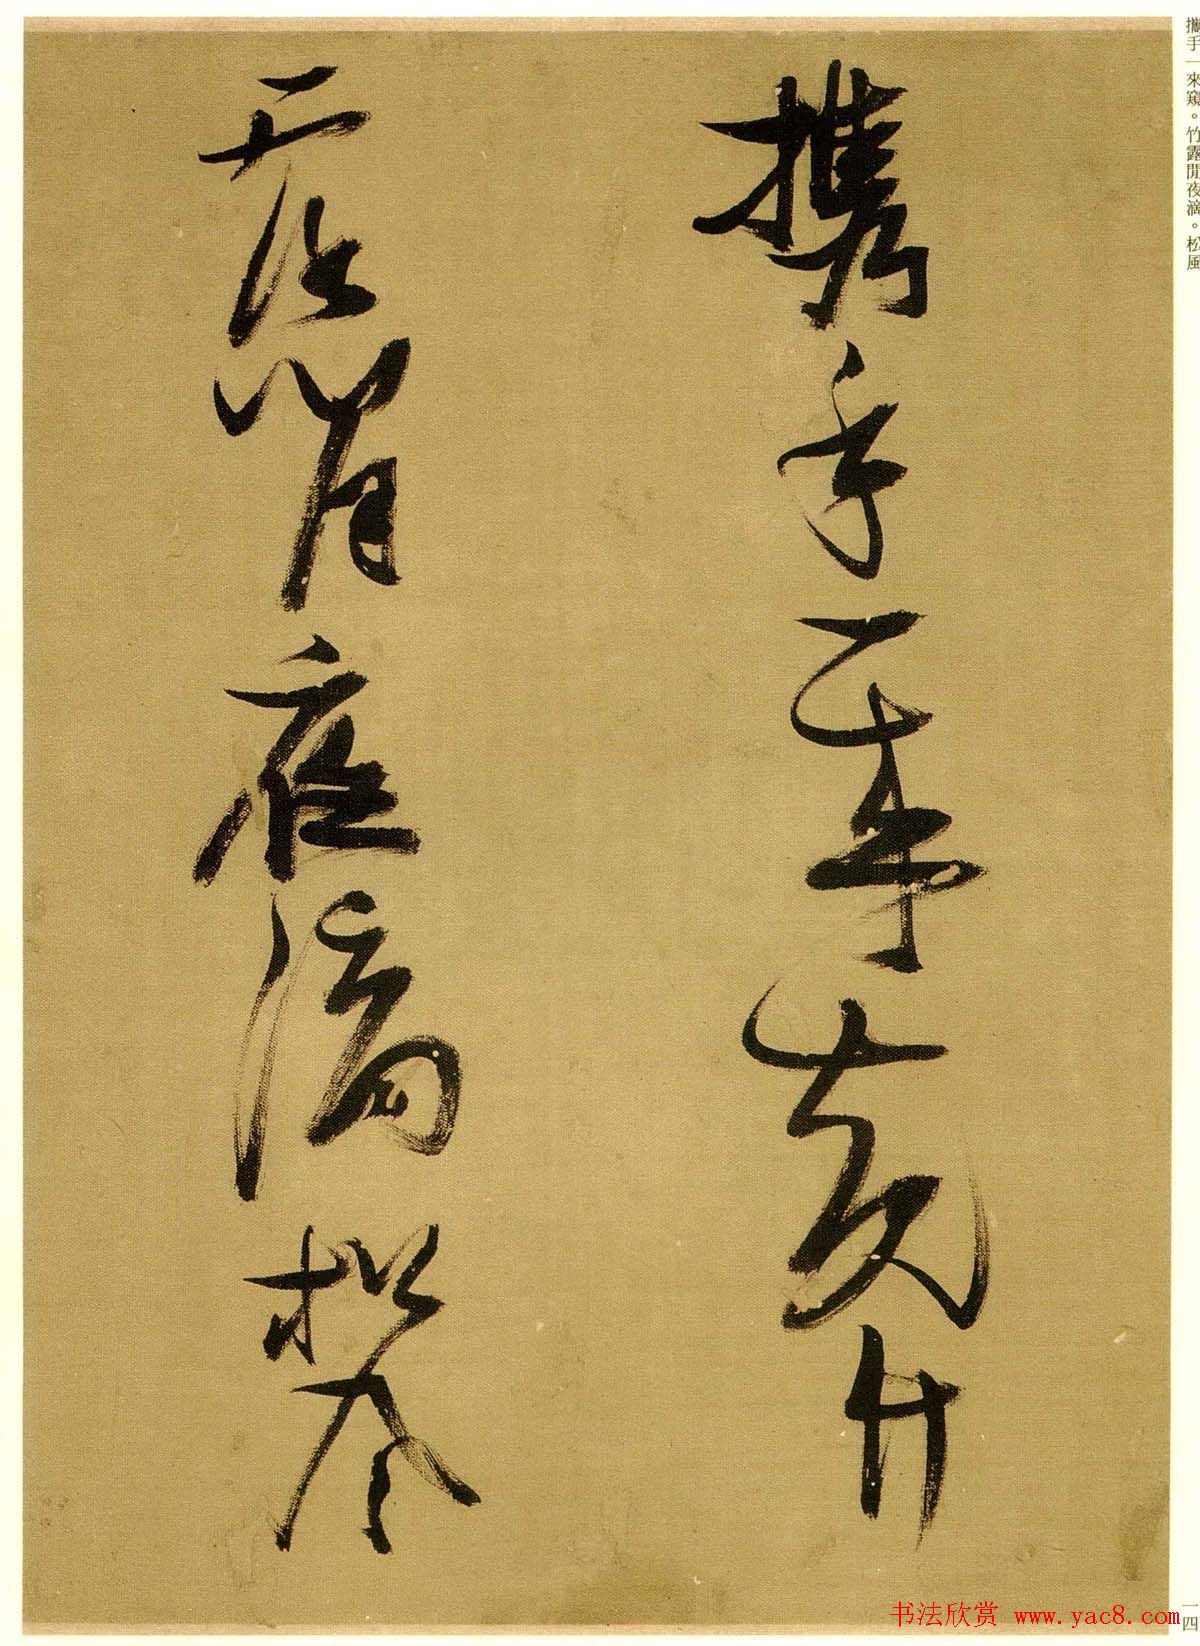 攜手一來窺。竹露閒夜滴。松風
携手一来窥竹
露閒夜滴松風
一四
书法欣赏 www.yac8.com